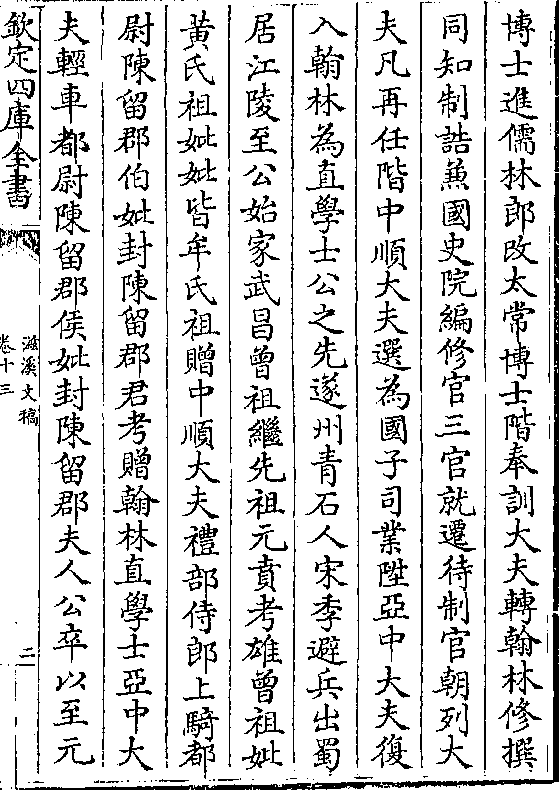 博士進儒林郎改太常博士階奉訓大夫轉翰林修撰
同知制誥兼國史院編修官三官就遷待制官朝列大
夫凡再任階中順大夫選為國子司業陞亞中大夫復
入翰林為直學士公之先遂州青石人宋季避兵出蜀
居江陵至公始家武昌曾祖繼先祖元賁考雄曾祖妣
黄氏祖妣妣皆牟氏祖贈中順大夫禮部侍郎上騎都
尉陳留郡伯妣封陳留郡君考贈翰林直學士亞中大
夫輕車都尉陳留郡侯妣封陳留郡夫人公卒以至元
欽定四庫全書
滋溪文稿
卷十三
二